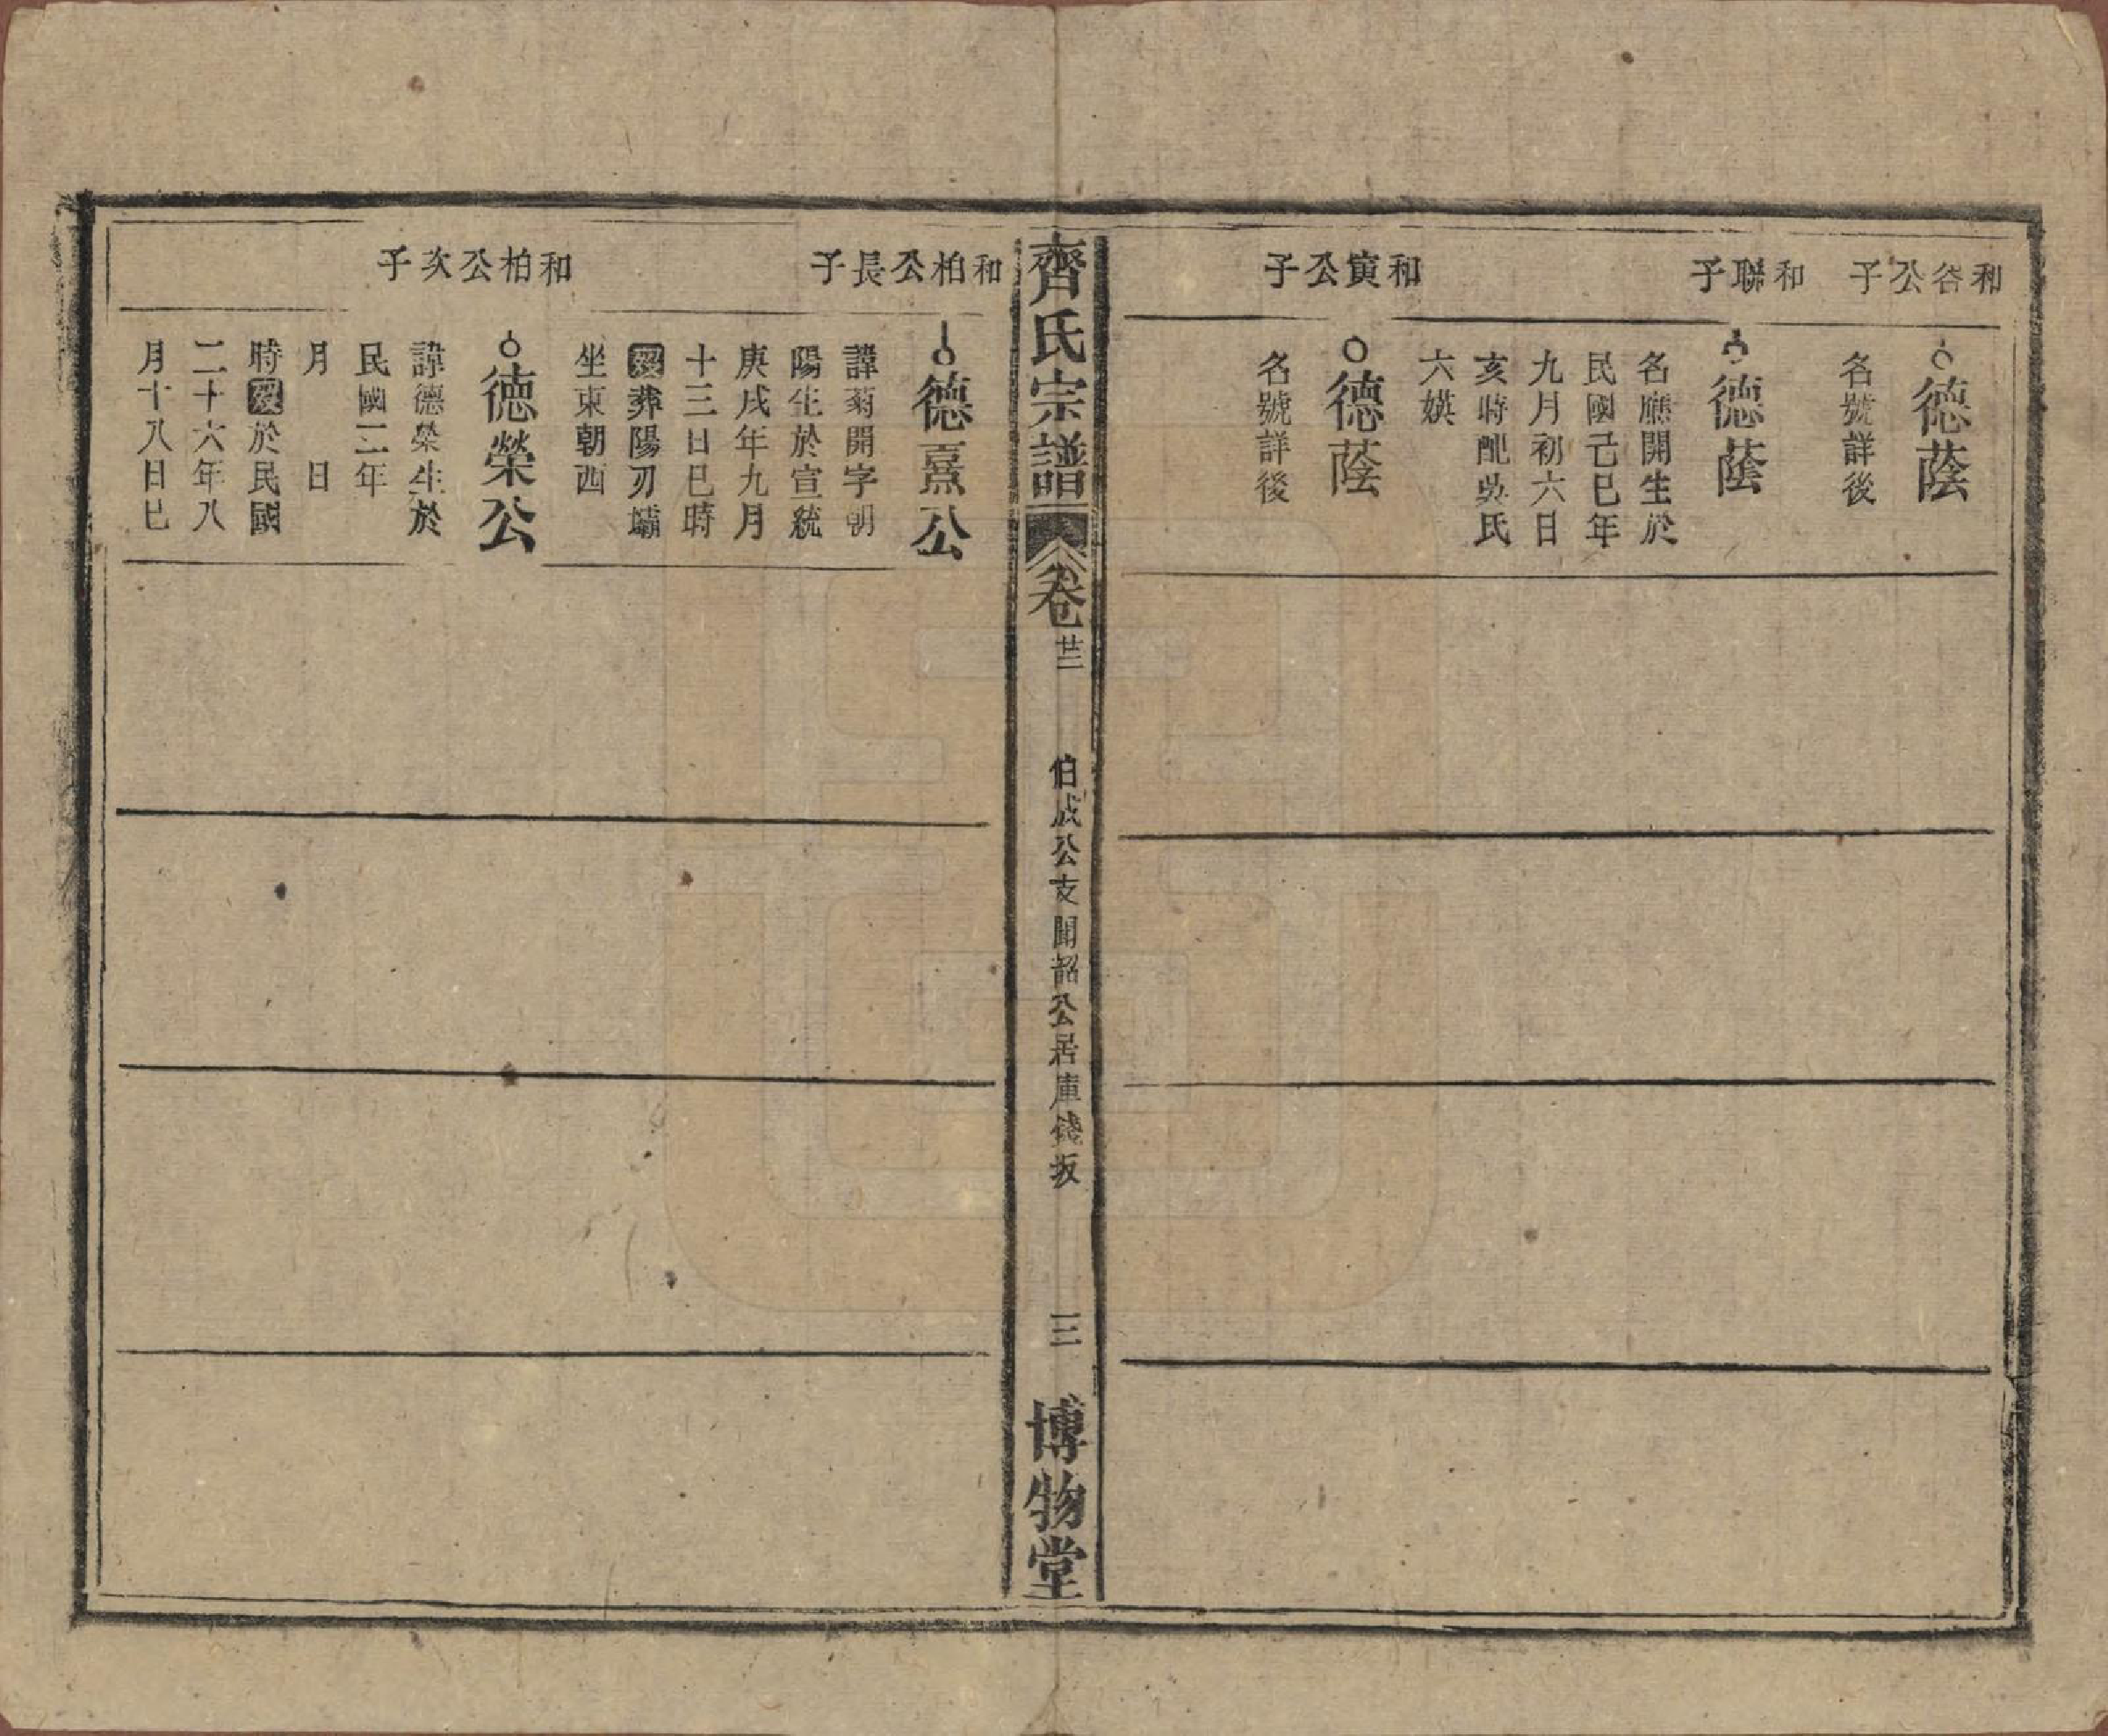 和谷公子
德蔭
名號詳後
和聯子
德蔭
名應開生於
民國己巳年
九月初六日
亥時配吳氏
六娛
和寅公子
德蔭
名號詳後
齊氏宗譜
卷廿三
伯成公支聞韶公居庫錢坂
三
博物堂
和柏公長子
德熹公
諱菊開字朝
陽生於宣統
庚戌年九月
十三日巳時
歿葬陽刃壩
坐東朝西
和柏公次子
德榮公
諱德榮生於
民國二年
月 日
時歿於民國
二十六年八
月十八日巳